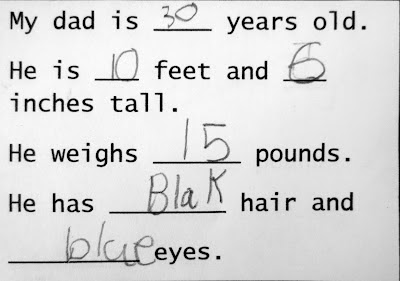 My dad is 30 years old.
He is 10 feet and 6
inches tall.
He weighs 15 pounds.
He has Blak hair and
blue eyes.